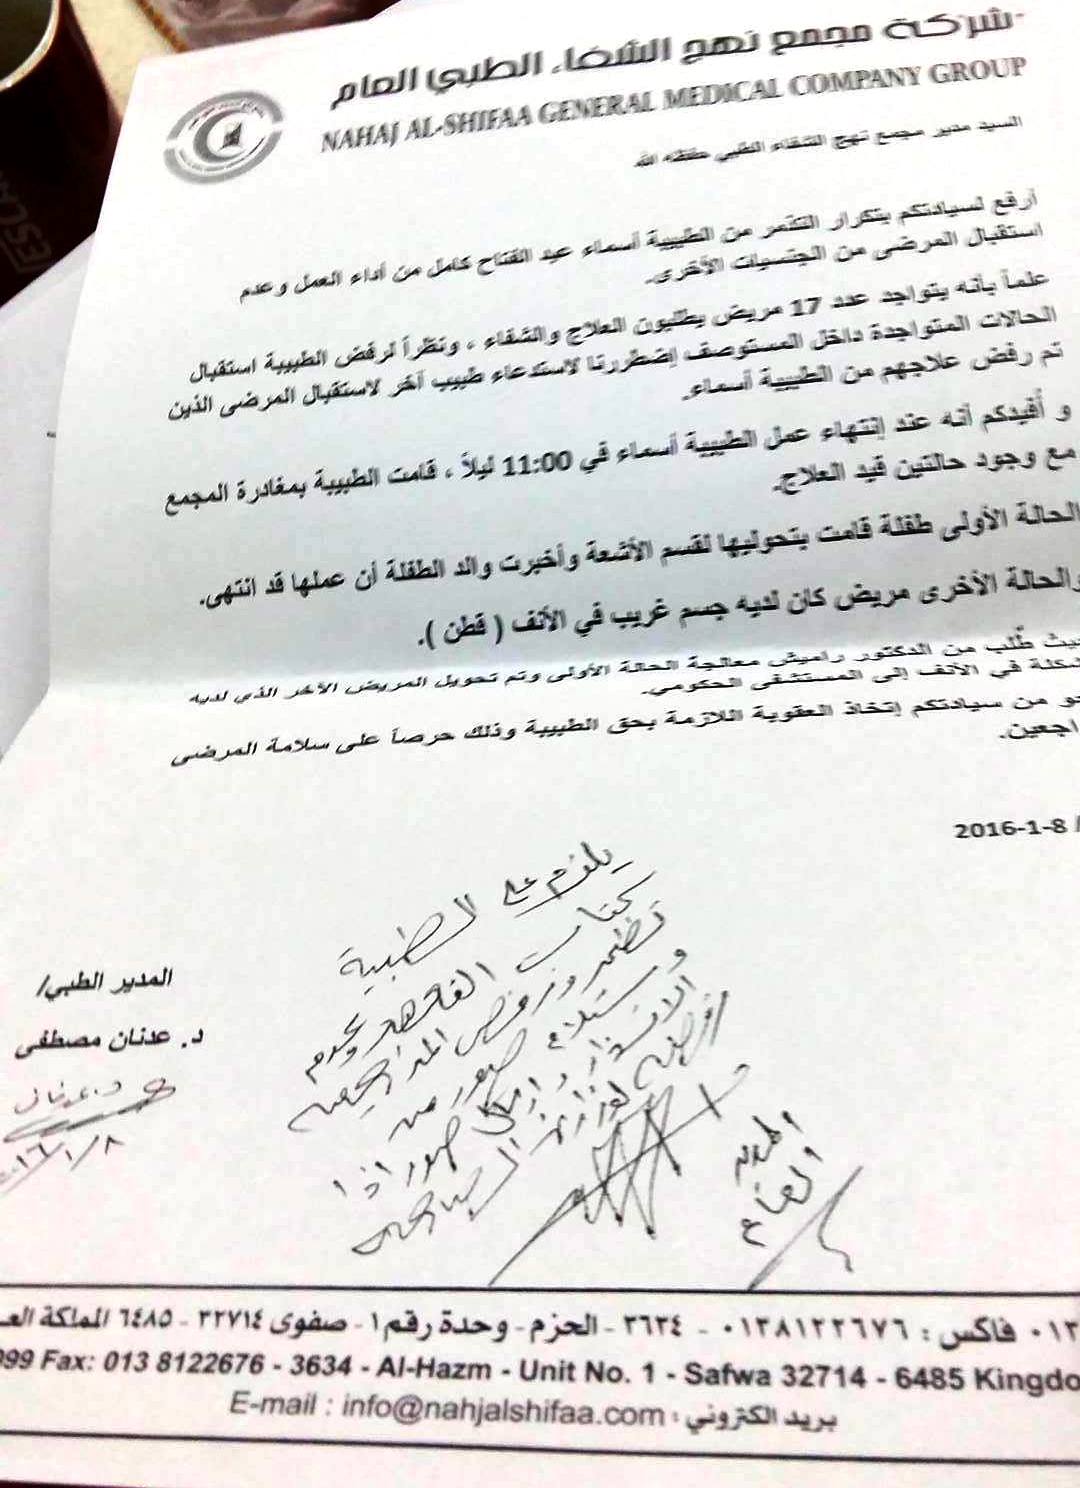 شركة مجمع نهج الشفاء الطبي العام
NAHAJ AL-SHIFAA GENERAL MEDICAL COMPANY GROUP
السيد مدير مجمع نهج الشفاء الطبي حفظه الله
أرفع لسيادتكم بتكرار التذمر من الطبيبة أسماء عبد الفتاح كامل من أداء العمل وعدم
استقبال المرضى من الجنسيات الأخرى.
علماً بأنه يتواجد عدد 17 مريض يطلبون العلاج والشفاء ، ونظراً لرفض الطبيبة استقبال
الحالات المتواجدة داخل المستوصف إضطررنا لاستدعاء طبيب آخر لاستقبال المرضى الذين
تم رفض علاجهم من الطبيبة أسماء.
و أفيدكم أنه عند إنتهاء عمل الطبيبة أسماء في 11:00 ليلاً ، قامت الطبيبة بمغادرة المجمع
مع وجود حالتين قيد العلاج.
الحالة الأولى طفلة قامت بتحوليها لقسم الأشعة وأخبرت والد الطفلة أن عملها قد انتهى.
والحالة الأخرى مريض كان لديه جسم غريب في الأنف ( قطن ).
طُلب من الدكتور راميش معالجة الحالة الأولى وتم تحويل المريض الآخر الذي لديه
في الأنف إلى المستشفى الحكومي.
من سيادتكم إتخاذ العقوبة اللازمة بحق الطبيبة وذلك حرصاً على سلامة المرضى
2016-1-8 /
يلفت على الطبيبة
كتاب التعهد بعدم
ورفض المراجعين
صور من
الانذار وارسال صور اذا
لوزارة الصحة
المدير
العام
المدير الطبي/
د. عدنان مصطفى
د. عدنان
٢٠١٦/١/٨
٠١٣ فاكس : ٠١٣٨١٢٢٦٧٦ - ٣٦٣٤ - الحزم - وحدة رقم ١ - صفوى ٣٢٧١٤ - ٦٤٨٥ المملكة
999 Fax: 013 8122676 - 3634 - Al-Hazm - Unit No. 1 - Safwa 32714 - 6485 Kingdo
E-mail : info@nahjalshifaa.com : بريد الكتروني